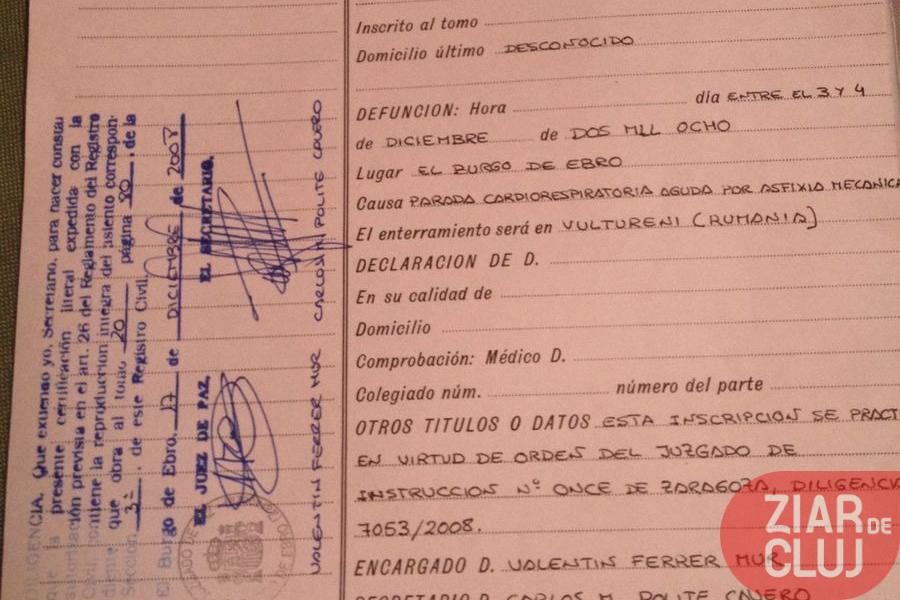 Inscrito al tomo
Domicilio último DESCONOCIDO
DEFUNCION: Hora día ENTRE EL 3 Y 4
de DICIEMBRE de DOS MIL OCHO
Lugar EL BURGO DE EBRO
Causa PARADA CARDIORESPIRATORIA AGUDA POR ASFIXIA MECANICA
El enterramiento será en VULTURENI (RUMANIA)
DECLARACION DE D.
En su calidad de
Domicilio
Comprobación: Médico D.
Colegiado núm. número del parte
OTROS TITULOS O DATOS ESTA INSCRIPCION SE PRACT
EN VIRTUD DE ORDEN DEL JUZGADO DE
INSTRUCCION Nº ONCE DE ZARAGOZA, DILIGENCIA
7053/2008.
ENCARGADO D. VALENTIN FERRER MUR
SECRETARIO D. CARLOS M. POLITE CAVERO
DILIGENCIA. Que extiendo yo, Secretario, para hacer constar
que la presente certificación literal expedida con la
autorización prevista en el art. 26 del Reglamento del Registro
Civil, contiene la reproducción integra del asiento correspon-
diente que obra al tomo 20 página 80 de la
Sección 3ª de este Registro Civil.
El Burgo de Ebro, 17 de DICIEMBRE de 2008
EL JUEZ DE PAZ, EL SECRETARIO,
VALENTIN FERRER MUR CARLOS M. POLITE CAVERO
ZIAR DE
CLUJ